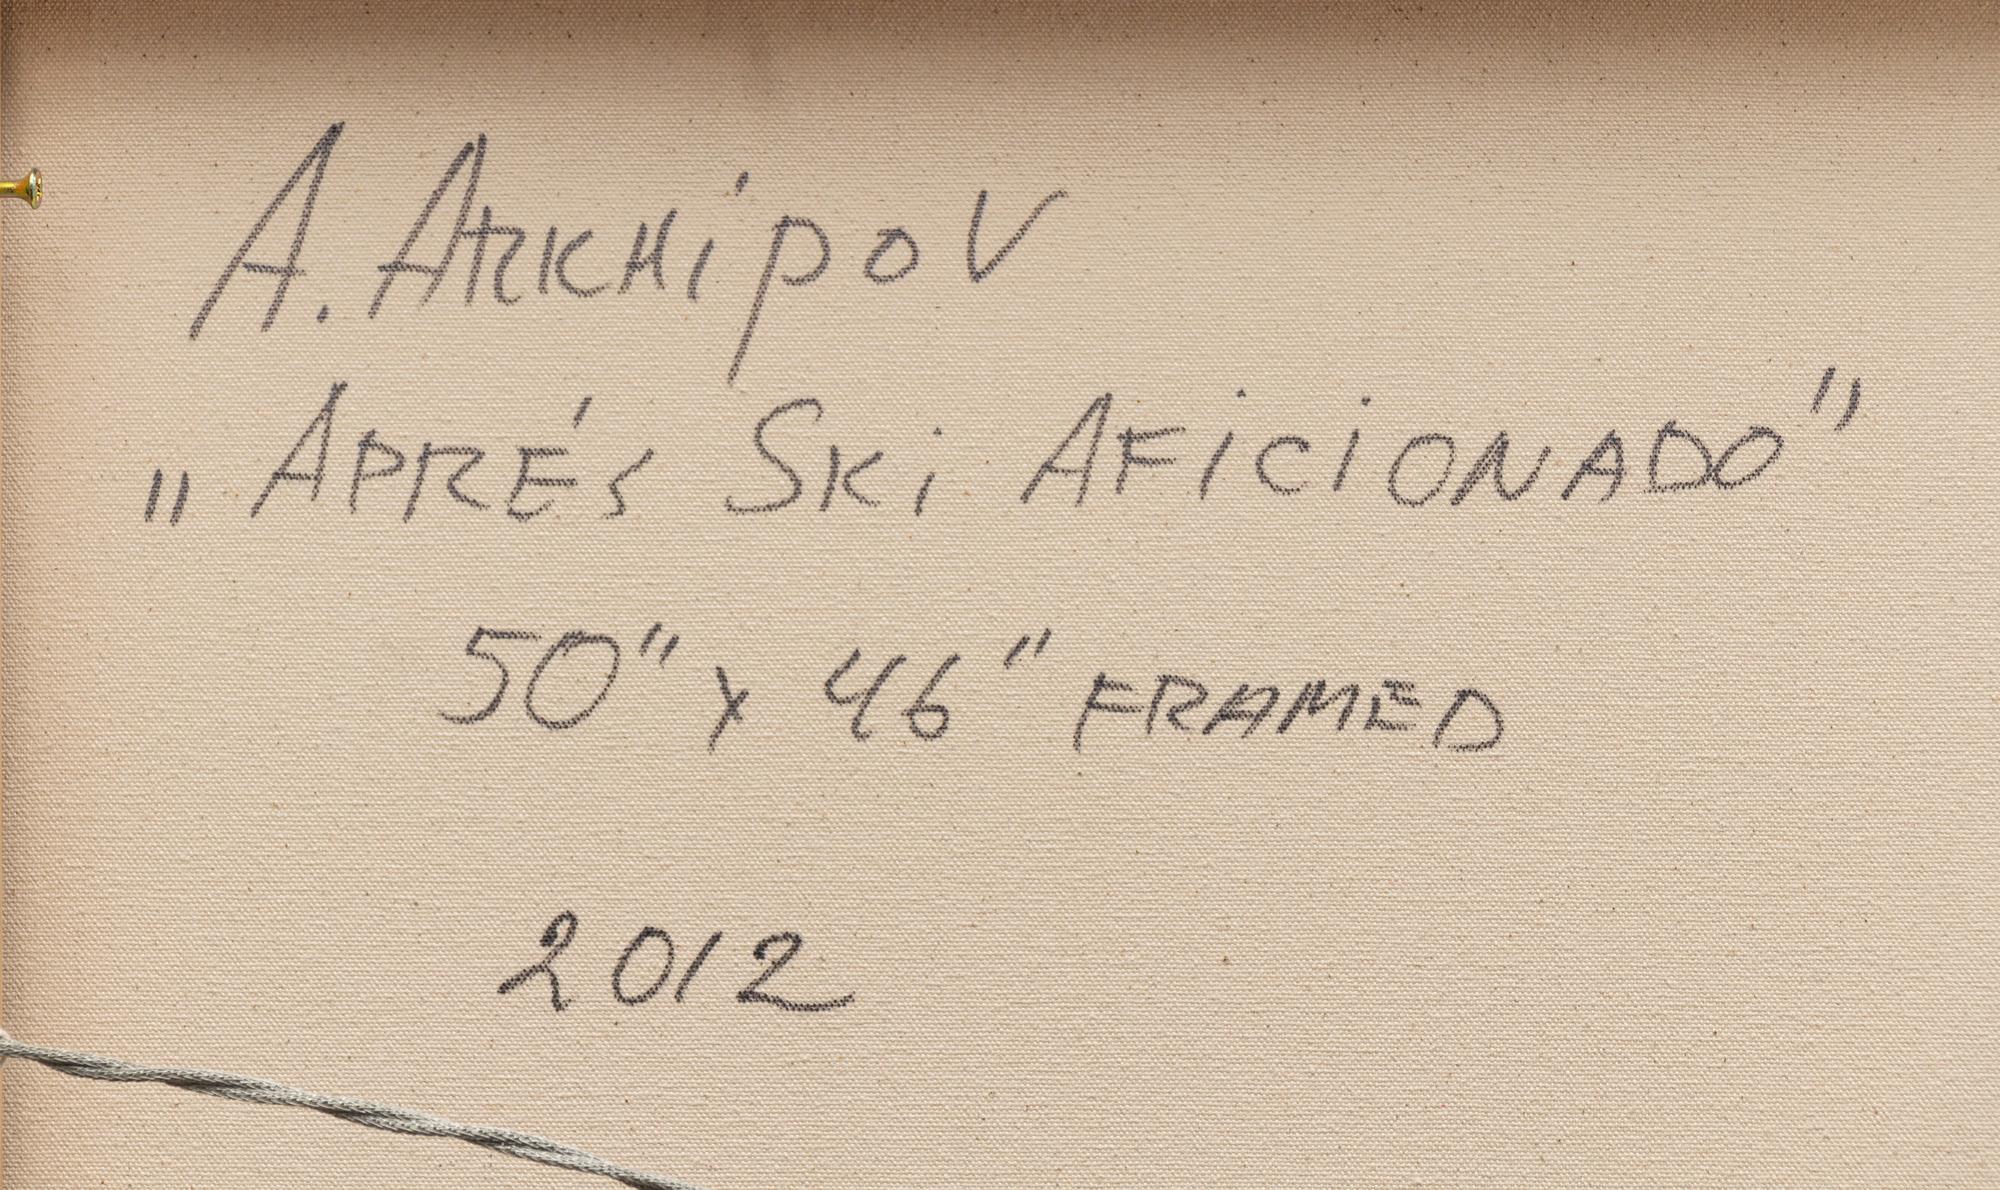 A. ARKHiPOV
„APRÉS SKi AFiCiONADO"
50" x 46" FRAMED
2012